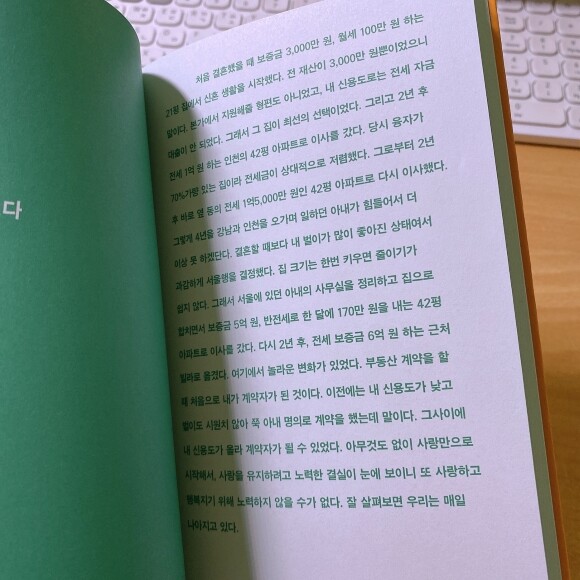 다
처음 결혼했을 때 보증금 3,000만 원, 월세 100만 원 하는
21평 집에서 신혼 생활을 시작했다. 전 재산이 3,000만 원뿐이었으니
말이다. 본가에서 지원해줄 형편도 아니었고, 내 신용도로는 전세 자금
대출이 안 되었다. 그래서 그 집이 최선의 선택이었다. 그리고 2년 후
전세 1억 원 하는 인천의 42평 아파트로 이사를 갔다. 당시 융자가
70%가량 있는 집이라 전세금이 상대적으로 저렴했다. 그로부터 2년
후 바로 옆 동의 전세 1억5,000만 원인 42평 아파트로 다시 이사했다.
그렇게 4년을 강남과 인천을 오가며 일하던 아내가 힘들어서 더
이상 못 하겠단다. 결혼할 때보다 내 벌이가 많이 좋아진 상태여서
과감하게 서울행을 결정했다. 집 크기는 한번 키우면 줄이기가
쉽지 않다. 그래서 서울에 있던 아내의 사무실을 정리하고 집으로
합치면서 보증금 5억 원, 반전세로 한 달에 170만 원을 내는 42평
아파트로 이사를 갔다. 다시 2년 후, 전세 보증금 6억 원 하는 근처
빌라로 옮겼다. 여기에서 놀라운 변화가 있었다. 부동산 계약을 할
때 처음으로 내가 계약자가 된 것이다. 이전에는 내 신용도가 낮고
벌이도 시원치 않아 쭉 아내 명의로 계약을 했는데 말이다. 그사이에
내 신용도가 올라 계약자가 될 수 있었다. 아무것도 없이 사랑만으로
시작해서, 사랑을 유지하려고 노력한 결실이 눈에 보이니 또 사랑하고
행복지기 위해 노력하지 않을 수가 없다. 잘 살펴보면 우리는 매일
나아지고 있다.